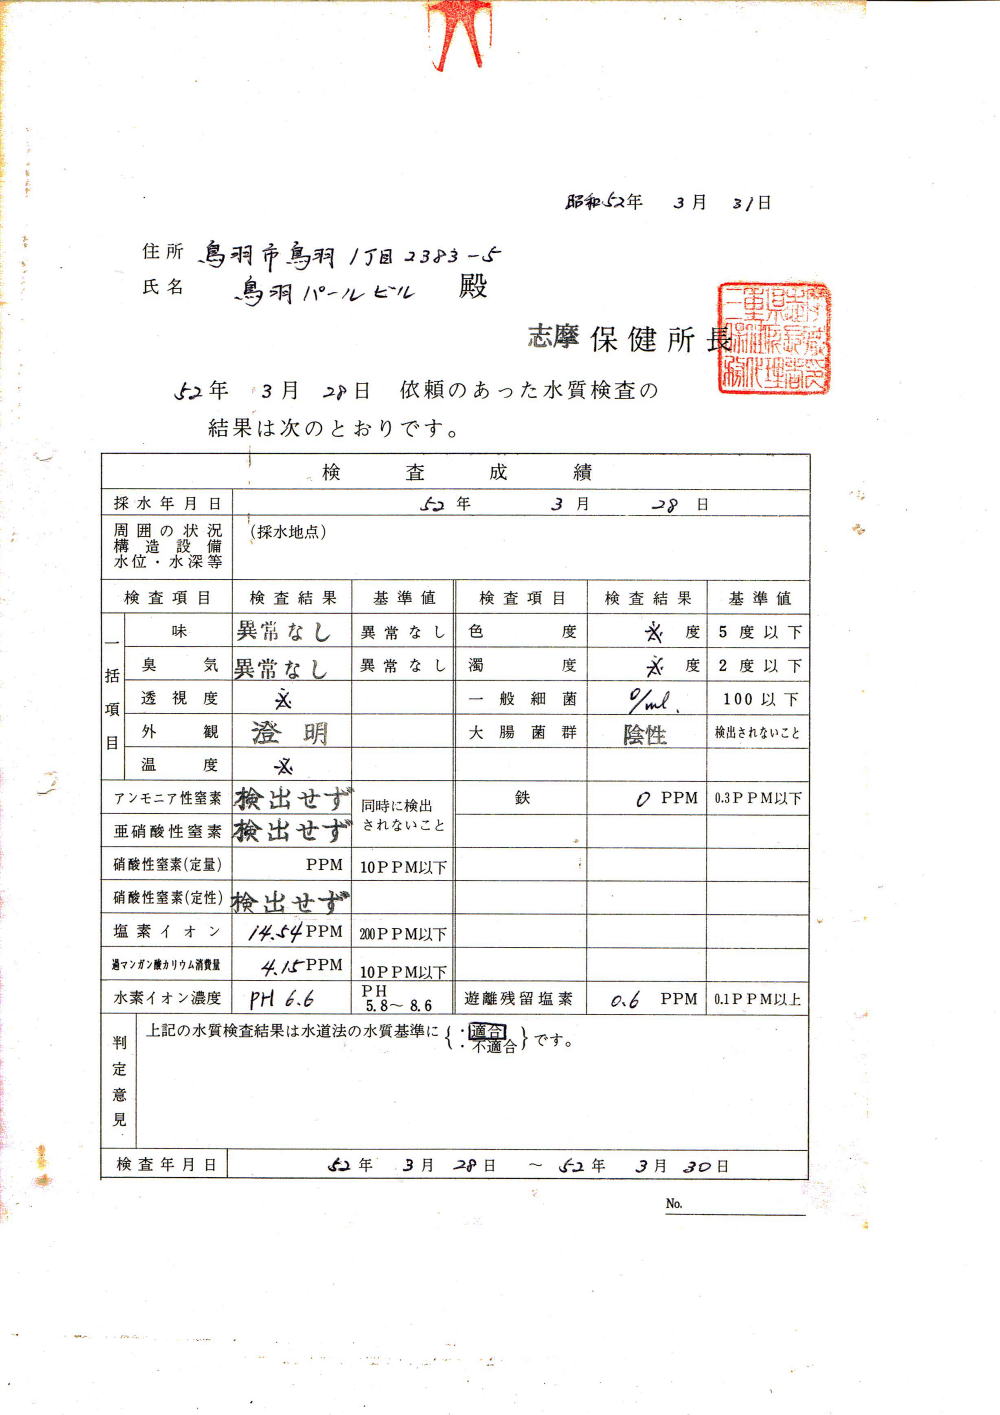 昭和52年 3月 31日
住所 鳥羽市鳥羽1丁目2383-5
氏名 鳥羽パールビル 殿
志摩 保健所長
52年 3月 28日 依頼のあった水質検査の
結果は次のとおりです。
検査成績
採水年月日 52年 3月 28日
周囲の状況 (採水地点)
構造設備
水位・水深等
検査項目 検査結果 基準値 検査項目 検査結果 基準値
一括項目
味 異常なし 異常なし 色度 度 5度以下
臭気 異常なし 異常なし 濁度 度 2度以下
透視度 一般細菌 0/ml. 100以下
外観 澄明 大腸菌群 陰性 検出されないこと
温度
アンモニア性窒素 検出せず 同時に検出 鉄 0 PPM 0.3PPM以下
亜硝酸性窒素 検出せず されないこと
硝酸性窒素(定量) PPM 10PPM以下
硝酸性窒素(定性) 検出せず
塩素イオン 14.54PPM 200PPM以下
過マンガン酸カリウム消費量 4.15PPM 10PPM以下
水素イオン濃度 PH 6.6 PH 5.8〜8.6 遊離残留塩素 0.6 PPM 0.1PPM以上
判定意見
上記の水質検査結果は水道法の水質基準に{・適合 ・不適合}です。
検査年月日 52年 3月 28日 〜 52年 3月 30日
No.